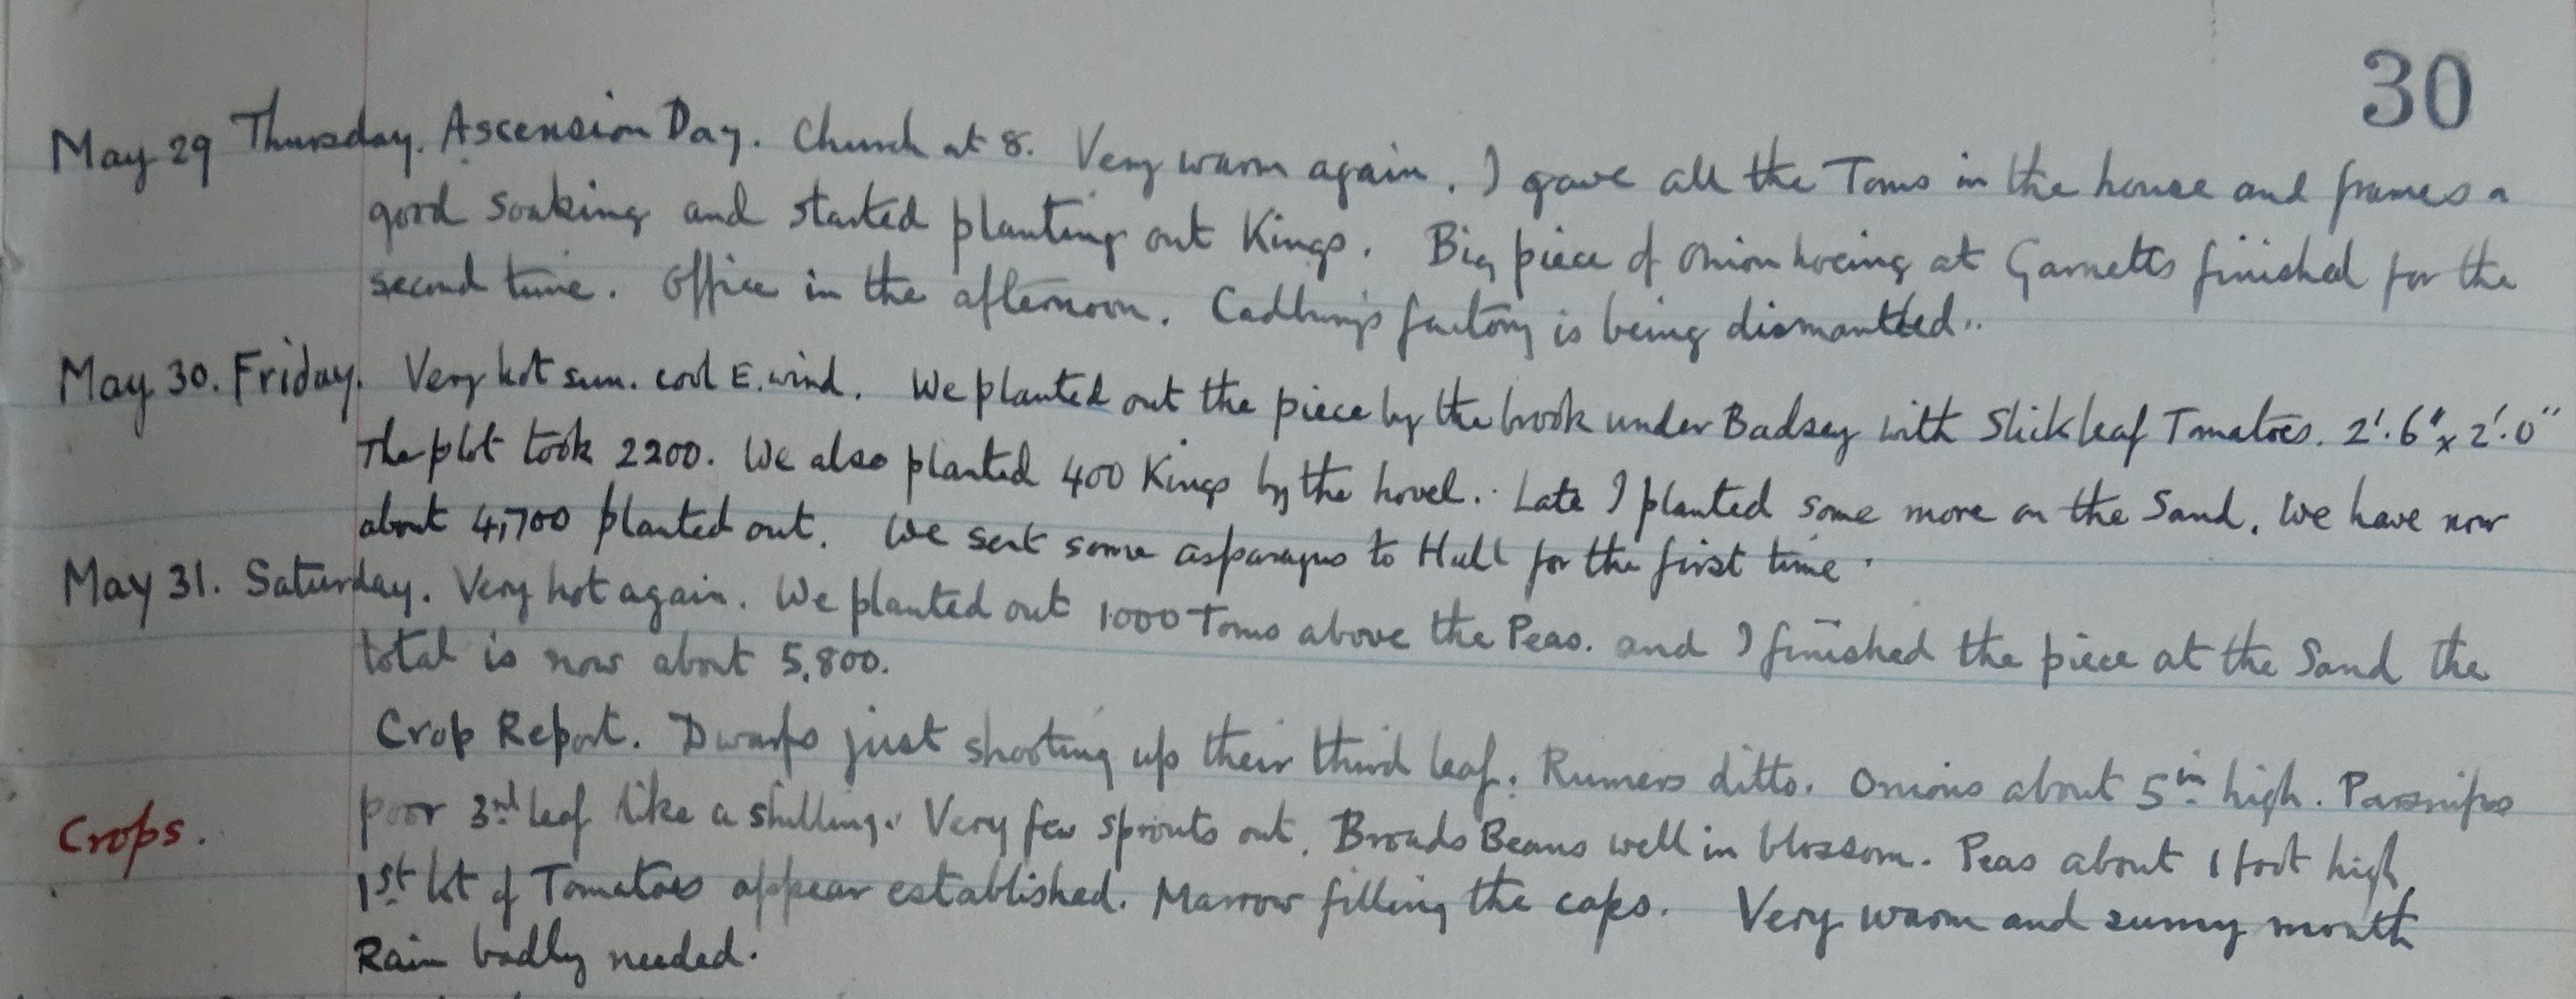 30
May 29 Thursday. Ascension Day. Church at 8. Very warm again. I gave all the Toms in the house and frames a
good soaking and started planting out Kings. Big piece of onion hoeing at Garnetts finished for the
second time. Office in the afternoon. Cadbury's factory is being dismantled..
May 30. Friday. Very hot sun. cool E. wind. We planted out the piece by the brook under Badsey with Stickleaf Tomatoes. 2'.6" x 2'.0"
The plot took 2200. We also planted 400 Kings by the hovel. Late I planted some more on the Sand. We have now
about 4,700 planted out. We sent some asparagus to Hull for the first time.
May 31. Saturday. Very hot again. We planted out 1000 Toms above the Peas. and I finished the piece at the Sand the
total is now about 5,800.
Crop Report. Dwarfs just shooting up their third leaf. Runners ditto. Onions about 5in high. Parsnips
Crops. poor 3rd leaf like a shilling. Very few sprouts out. Broads Beans well in blossom. Peas about 1 foot high
1st lot of Tomatoes appear established. Marrow filling the caps. Very warm and sunny month
Rain badly needed.